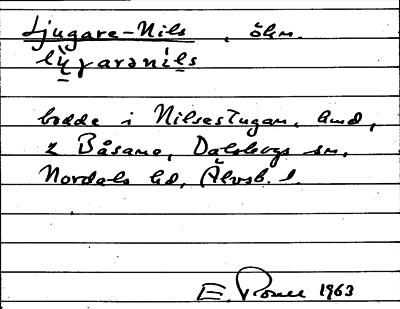 Ljugare-Nils, öhm.
lỳɣaranìls
bodde i Nilsestugan, Amd,
z Båsane, Dalskogs sn,
Nordals hd, Älvsb. l.
E. 1963